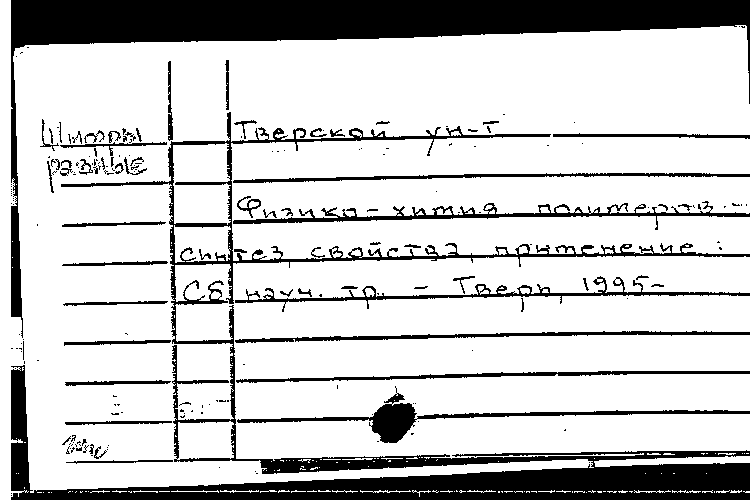 Шифры
разные
Тверской ун-т
Физико-химия полимеров -
синтез, свойства, применение :
Сб. науч. тр. - Тверь, 1995-